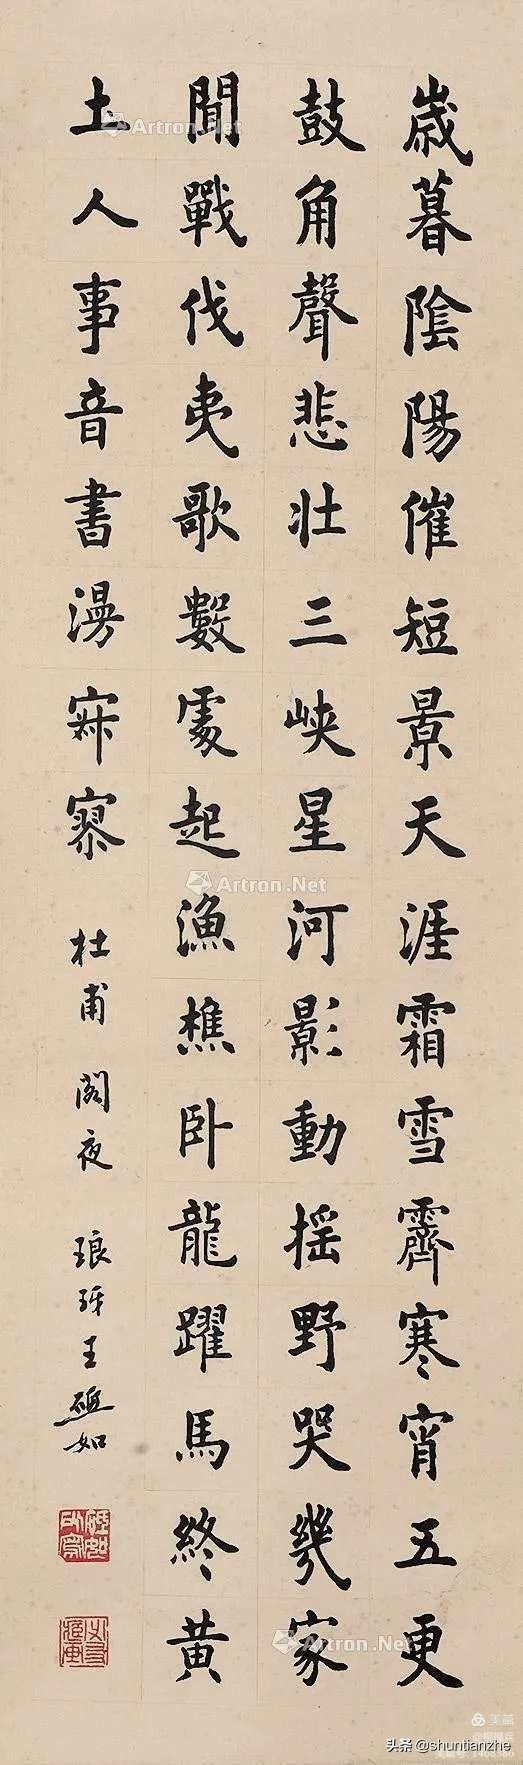 歲暮陰陽催短景天涯霜雪霽寒宵五更
鼓角聲悲壯三峽星河影動搖野哭幾家
聞戰伐夷歌數處起漁樵卧龍躍馬終黃
土人事音書漫寂寥 杜甫 閣夜 琅玡王如
Artron.Net
Artron.Net
Artron.Net
美篇
头条 @shuntianzhe